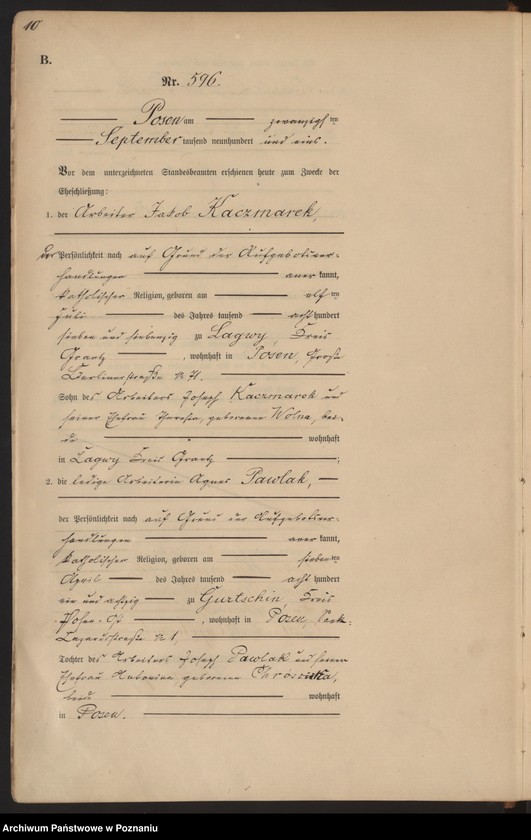 10
B.
Nr. 596.
Posen am zwanzigsten
September tausend neunhundert und eins.
Vor dem unterzeichneten Standesbeamten erschienen heute zum Zwecke der
Eheschließung:
1. der Arbeiter Jakob Kaczmarek,
der Persönlichkeit nach auf Grund der Aufgebotsver-
handlungen anerkannt,
katholischer Religion, geboren am elften
Juli des Jahres tausend achthundert
sieben und siebenzig zu Lagwy, Kreis
Graetz, wohnhaft in Posen, Große
Berlinerstraße № 71.
Sohn des Arbeiters Joseph Kaczmarek und
seiner Ehefrau Theresia, geborene Wolna, bei-
de wohnhaft
in Lagwy Kreis Graetz;
2. die ledige Arbeiterin Agnes Pawlak,
der Persönlichkeit nach auf Grund der Aufgebotsver-
handlungen anerkannt,
katholischer Religion, geboren am siebenten
April des Jahres tausend achthundert
ein und achtzig zu Gurtschin, Kreis
Posen-Ost, wohnhaft in Posen,
Lazarusstraße № 1,
Tochter des Arbeiters Joseph Pawlak und seiner
Ehefrau Antonina, geborene
beide wohnhaft
in Posen.
Archiwum Państwowe w Poznaniu